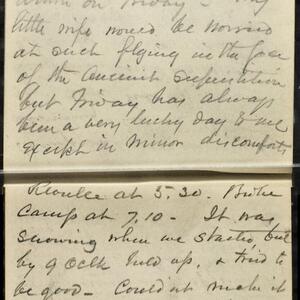 on Friday - My
little wife would be horrified
at such flying in the face
of the ancient superstition
but Friday has always
been a very lucky day to me
except in minor discomforts
Reveille at 5.30. Broke
camp at 7.10 - It was
snowing when we started but
by 9 oclk held up, & tried to
be good - Couldn't make it